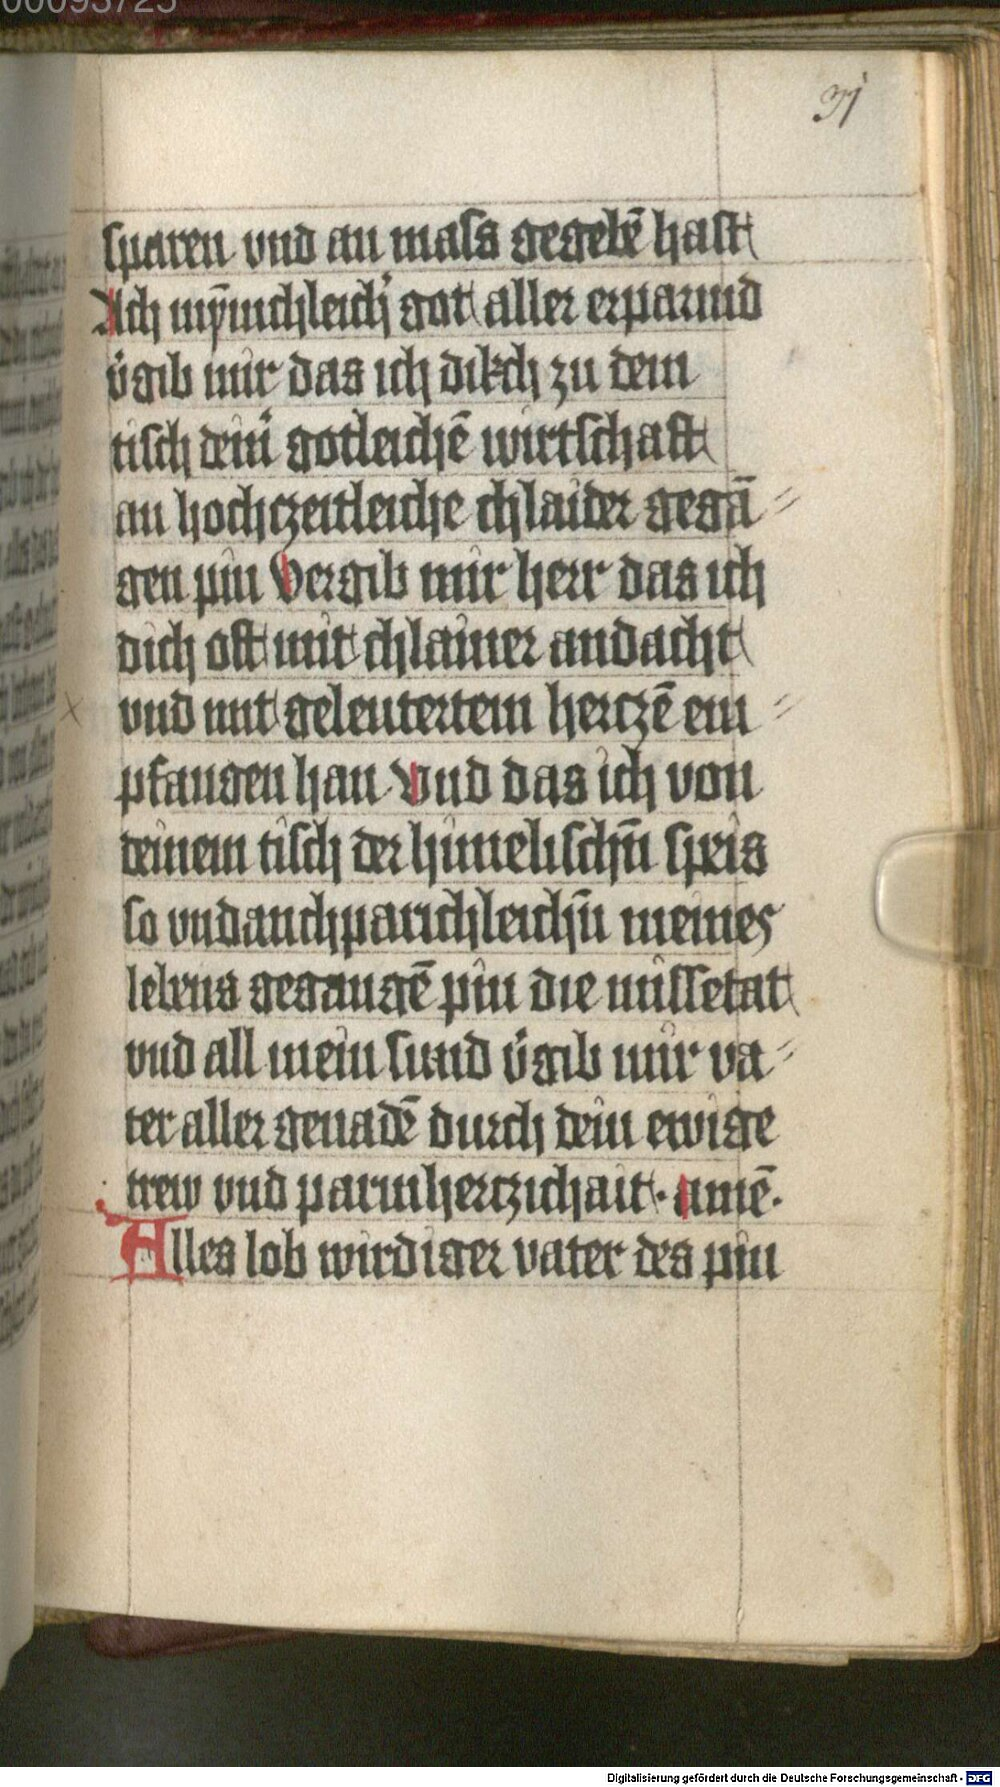 00093725
31
sparen vnd an mass gegebē hast
Ach mȳnichleich' got aller erparmd
v'gib mir das ich dikch zu dem
tisch dein' gotleichē wirtschaft
an hochczeitleiche chlaider gegā
gen pin Vergib mir herr das ich
dich oft mit chlainer andacht
vnd mit geleutertem hertzē em
pfangen han Vnd das ich von
deinem tisch der himelischn̄ speis
so vndanchparichleichn̄ meines
lebens gegangē pin die missetat
vnd all mein sund v'gib mir va
ter aller genadē durch dein ewige
trew vnd parmhertzichait · amē ·
Alles lob wirdiger vater des pin
Digitalisierung gefördert durch die Deutsche Forschungsgemeinschaft - DFG